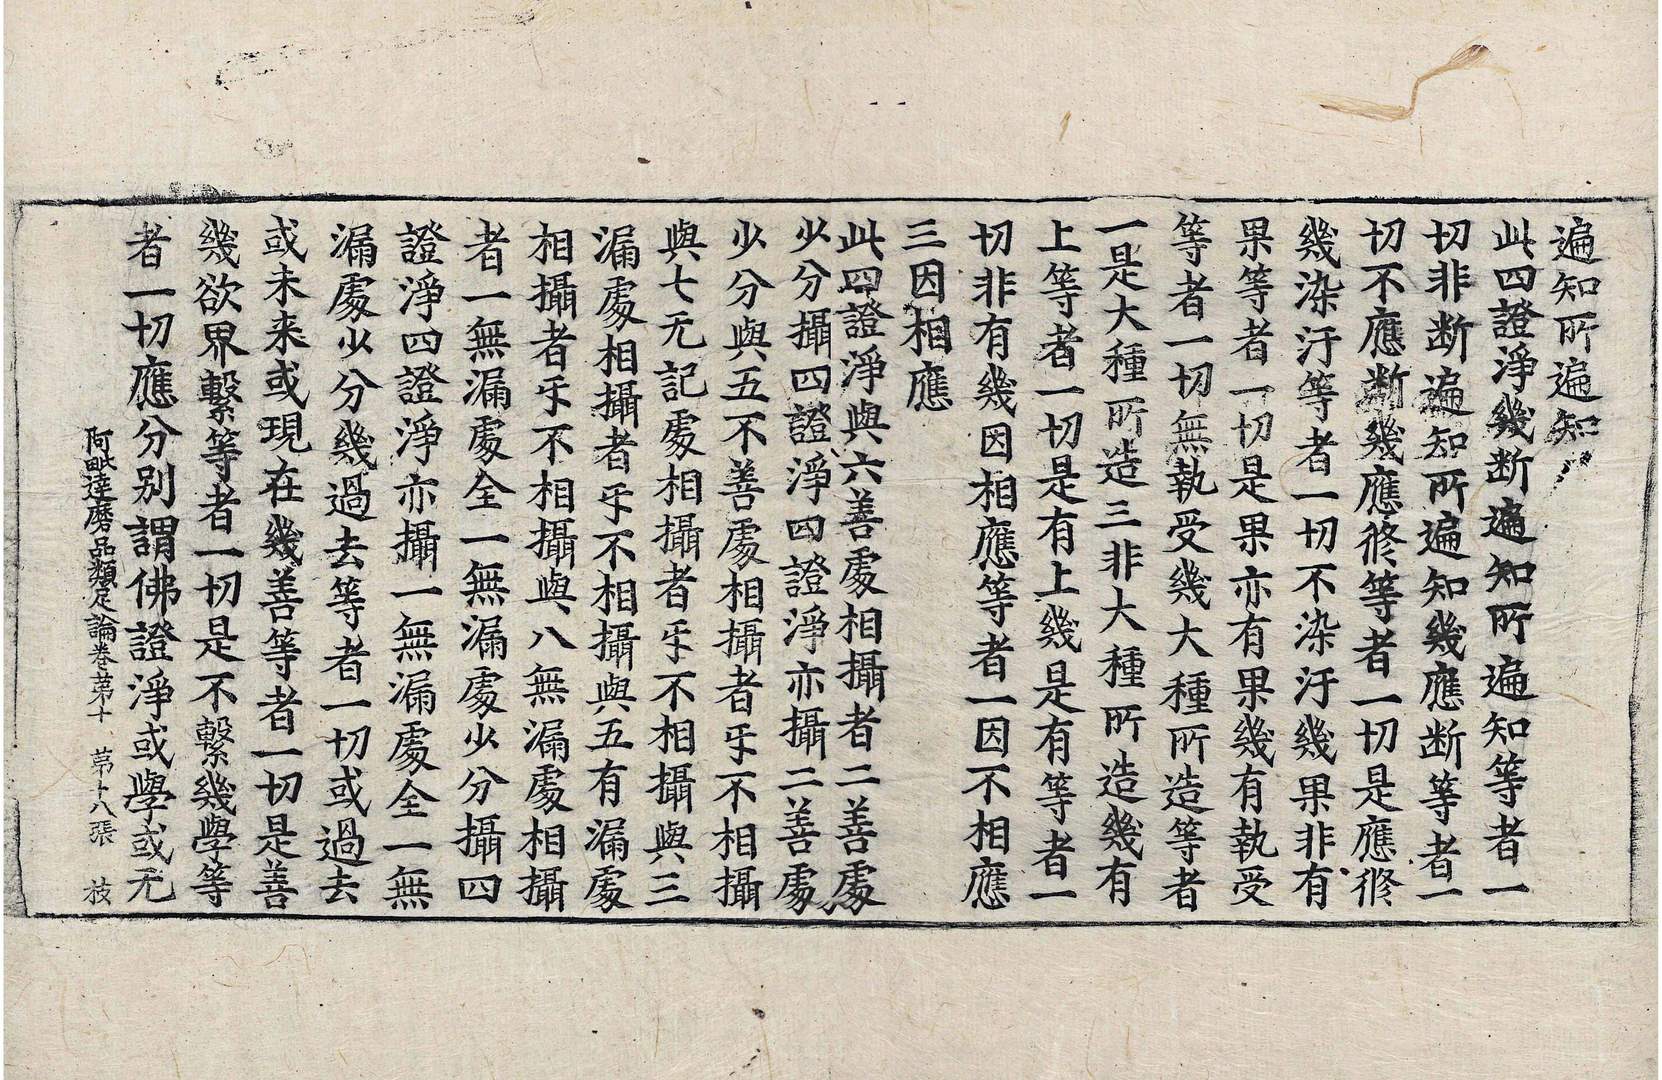 遍知所遍知
此四證淨幾断遍知所遍知等者一
切非断遍知所遍知幾應断等者一
切不應断幾應修等者一切是應修
幾染汙等者一切不染汙幾果非有
果等者一切是果亦有果幾有執受
等者一切無執受幾大種所造等者
一是大種所造三非大種所造幾有
上等者一切是有上幾是有等者一
切非有幾因相應等者一因不相應
三因相應
此四證淨與六善處相攝者二善處
少分攝四證淨四證淨亦攝二善處
少分與五不善處相攝者乎不相攝
與七无記處相攝者乎不相攝與三
漏處相攝者乎不相攝與五有漏處
相攝者乎不相攝與八無漏處相攝
者一無漏處全一無漏處少分攝四
證淨四證淨亦攝一無漏處全一無
漏處少分幾過去等者一切或過去
或未来或現在幾善等者一切是善
幾欲界繫等者一切是不繫幾學等
者一切應分別謂佛證淨或學或无
阿毗達磨品類足論卷苐十 苐十八張 枝